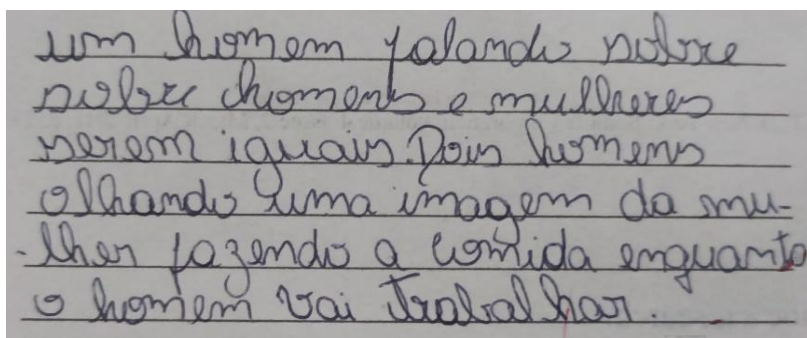 um homem falando sobre
sobre homens e mulheres
serem iguais. Dois homens
olhando uma imagem da mu-
-lher fazendo a comida enquanto
o homem vai trabalhar.